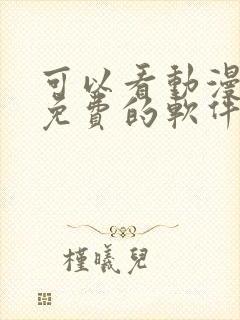 可以看動漫
免費的軟件
槿曦兒